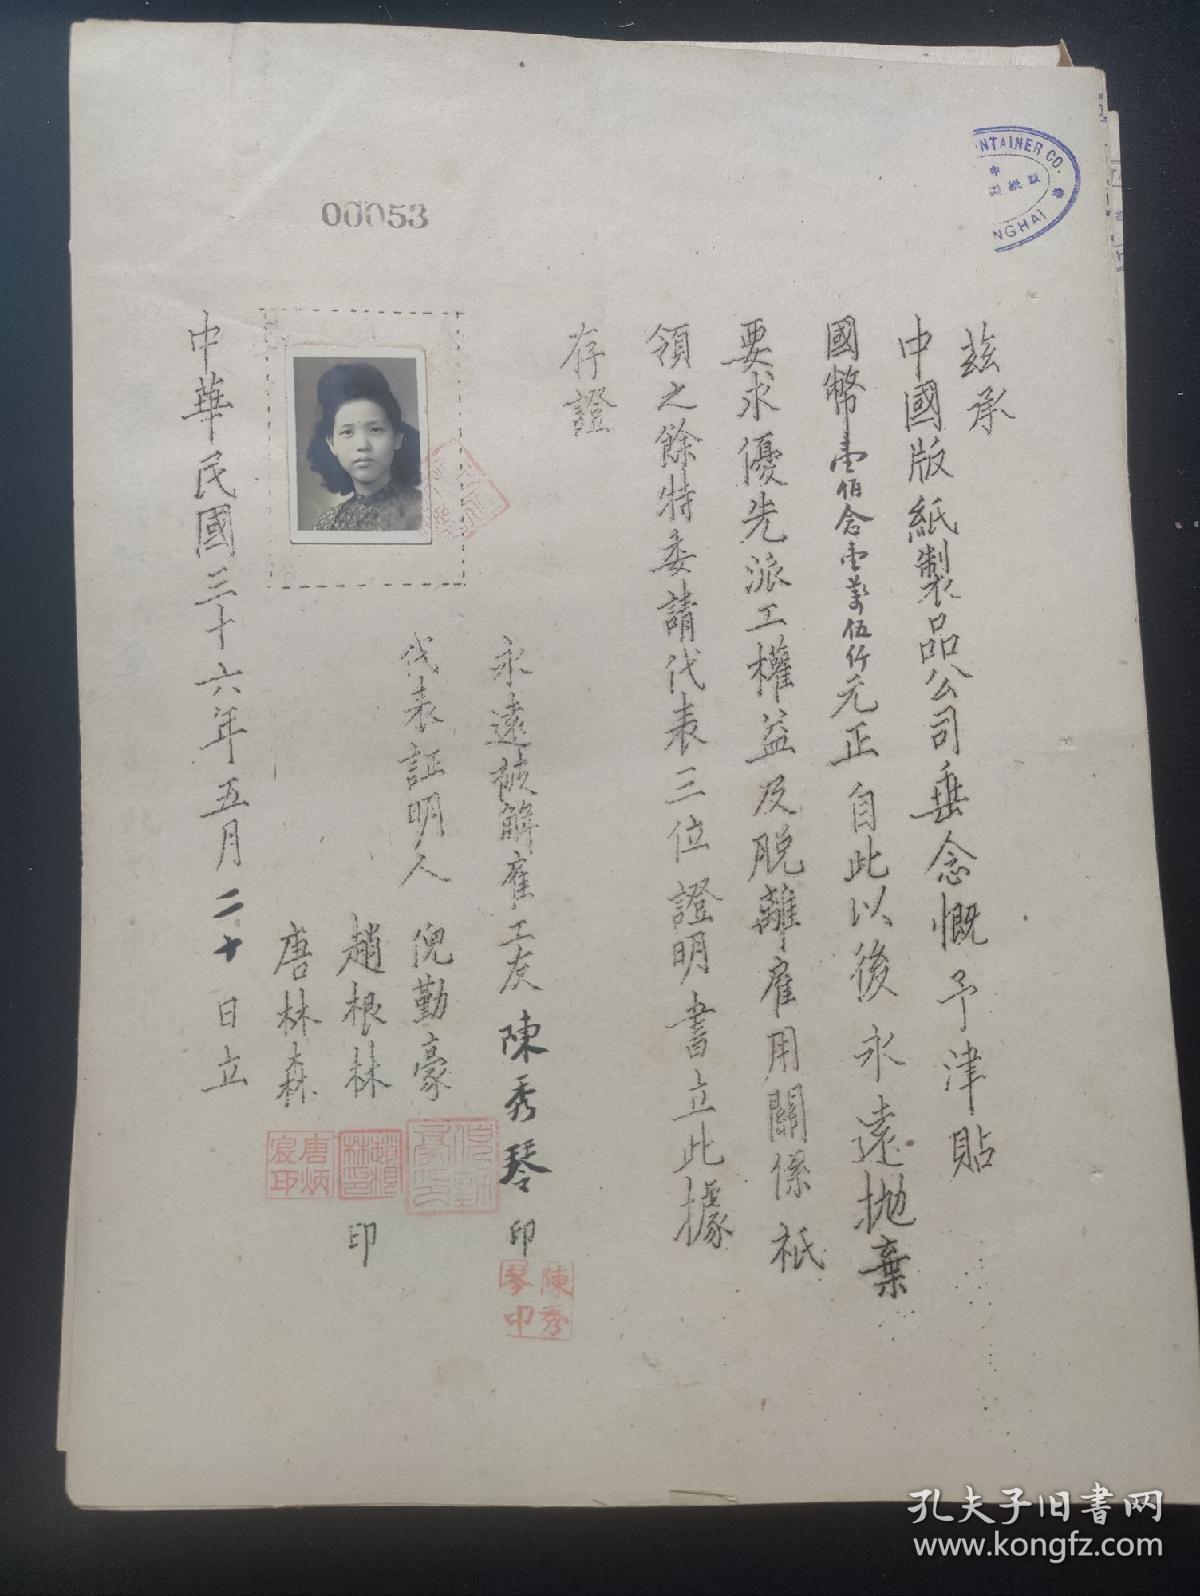 NTAINER CO.
NGHAI
00053
茲承
中國版紙製品公司垂念慨予津貼
國幣壹佰念壹萬伍仟元正自此以後永遠拋棄
要求優先派工權益及脫離雇用關係祇
領之餘特委請代表三位證明書立此據
存證
永遠被解雇工友陳秀琴印
陳秀琴印
代表証明人倪勤豪
趙根林印
趙根林印
唐林森
唐炳宸印
中華民國三十六年五月二十日立
孔夫子旧书网
www.kongfz.com